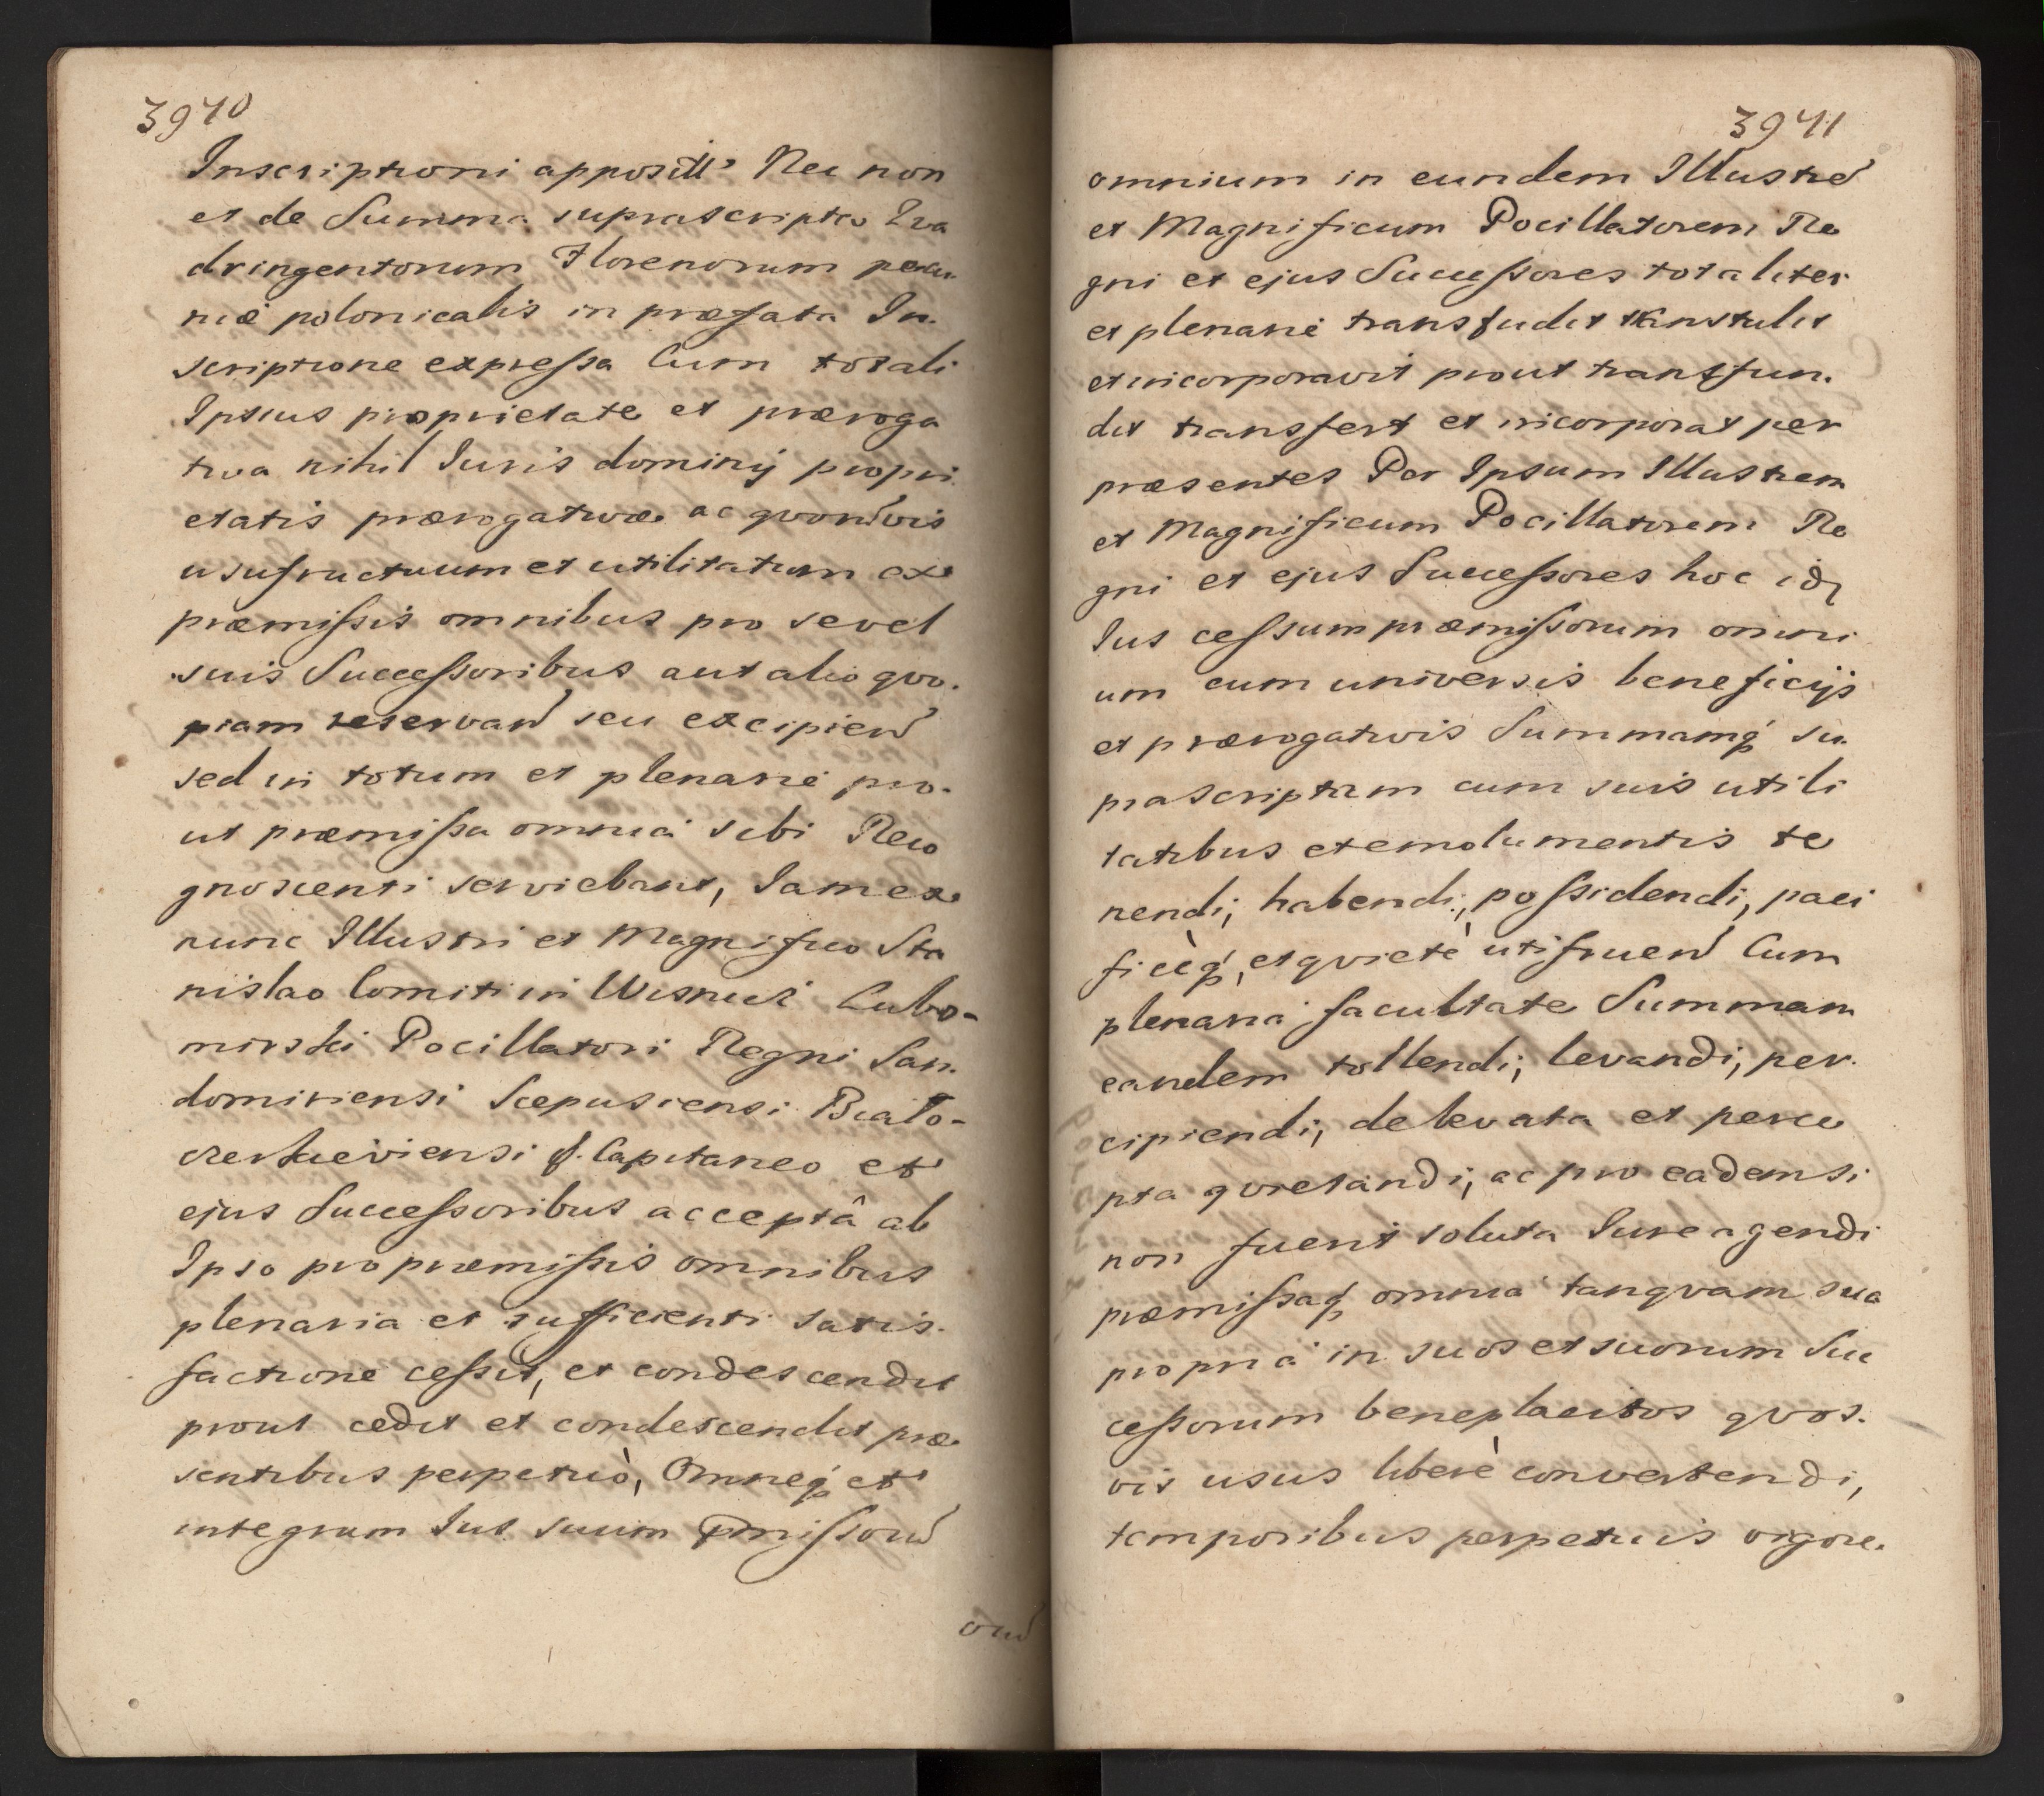 3940
Inscriptioni appositt' Nec non
et de Summa suprascripta Qva
dringentorum Florenorum pecu-
niæ polonicalis in præfata In-
scriptione expressa Cum totali
Ipsius proprietate et præroga
tiva nihil Iuris dominij propri
etatis prærogativæ ac qvorumvis
usufructuum et utilitatum ex
præmissis omnibus pro se vel
suis Successoribus aut alio qvo-
piam reservand seu excipiend
sed in totum et plenarie pro-
ut præmissa omnia sibi Reco
gnoscenti serviebant, Iam ex
nunc Illustri et Magnifico Sta
nislao Comiti in Wisnicz Lubo-
mirski Pocillatori Regni San-
domiriensi Scepusiensi Biało-
cerkieviensi &. Capitaneo et
ejus Successoribus acceptâ ab
Ipso pro præmissis omnibus
plenaria et sufficienti satis-
factione cessit, et condescendit
prout cedit et condescendit præ
sentibus perpetuò, Omneq et
integrum Ius suum Pmissorum
3941
omnium in eundem Illustre
et Magnificum Pocillatorem Re
gni et ejus Successores totaliter
et plenarie transfudit transtulit
et incorporavit prout transfun-
dit transfert et incorporat per
præsentes Per Ipsum Illustrem
et Magnificum Pocillatorem Re
gni et ejus Successores hoc idq
Ius cessum præmissorum omni
um cum universis beneficijs
et prærogativis Summamq su-
prascriptam cum suis utili
tatibus et emolumentis te
nendi, habendi, possidendi, paci
ficèq, et qvietè utifruend Cum
plenaria facultate Summam
eandem tollendi, levandi, per-
cipiendi, de levata et perce
pta qvietandi, ac pro eadem si
non fuerit soluta Iure agendi
præmissaq omnia tanqvam sua
propria in suos et suorum Suc
cessorum beneplacitos qvos-
vis usus liberè convertendi,
temporibus perpetuis vigore.